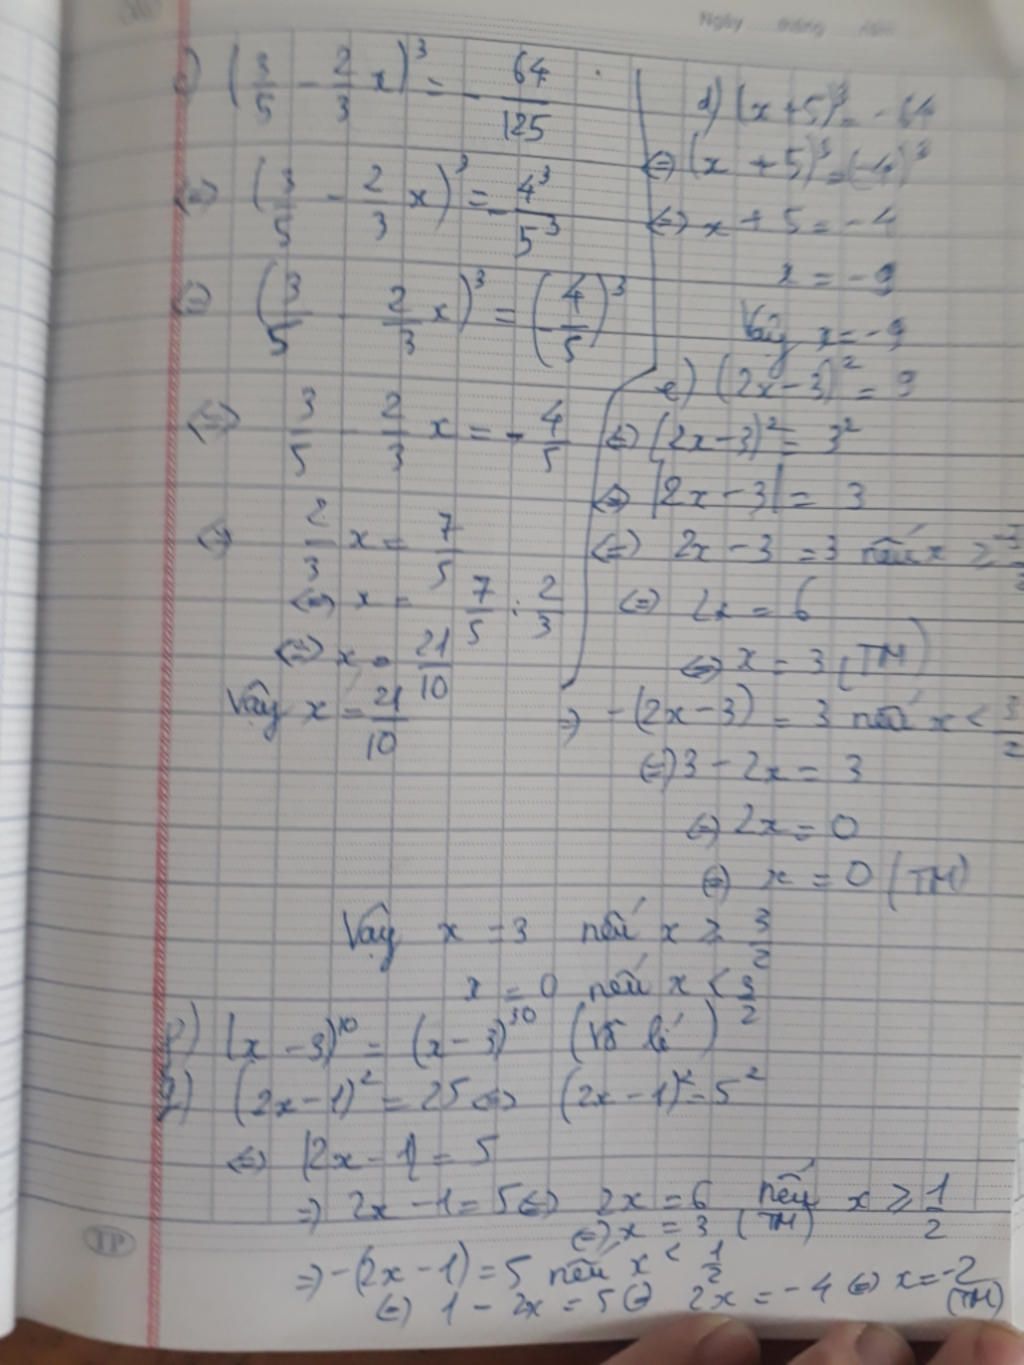 Ngày tháng năm
c) (3/5 - 2/3 x)³ = - 64/125
(=) (3/5 - 2/3 x)³ = - 4³/5³
(=) (3/5 - 2/3 x)³ = (- 4/5)³
(=) 3/5 - 2/3 x = - 4/5
(=) 2/3 x = 7/5
(=) x = 7/5 : 2/3
(=) x = 21/10
Vậy x = 21/10
d) (x + 5)³ = - 64
(=) (x + 5)³ = (-4)³
(=) x + 5 = - 4
x = - 9
Vậy x = - 9
e) (2x - 3)² = 9
(=) (2x - 3)² = 3²
(=) |2x - 3| = 3
(=) 2x - 3 = 3 nếu x ≥ 3/2
(=) 2x = 6
(=) x = 3 (TM)
=) -(2x - 3) = 3 nếu x < 3/2
(=) 3 - 2x = 3
(=) 2x = 0
(=) x = 0 (TM)
Vậy x = 3 nếu x ≥ 3/2
x = 0 nếu x < 3/2
f) (x - 3)¹⁰ = (x - 3)³⁰ (Vô lí)
g) (2x - 1)² = 25 (=) (2x - 1)² = 5²
(=) |2x - 1| = 5
=) 2x - 1 = 5 (=) 2x = 6 nếu x ≥ 1/2
(=) x = 3 (TM)
=) -(2x - 1) = 5 nếu x < 1/2
(=) 1 - 2x = 5 (=) 2x = - 4 (=) x = -2 (TM)
TP